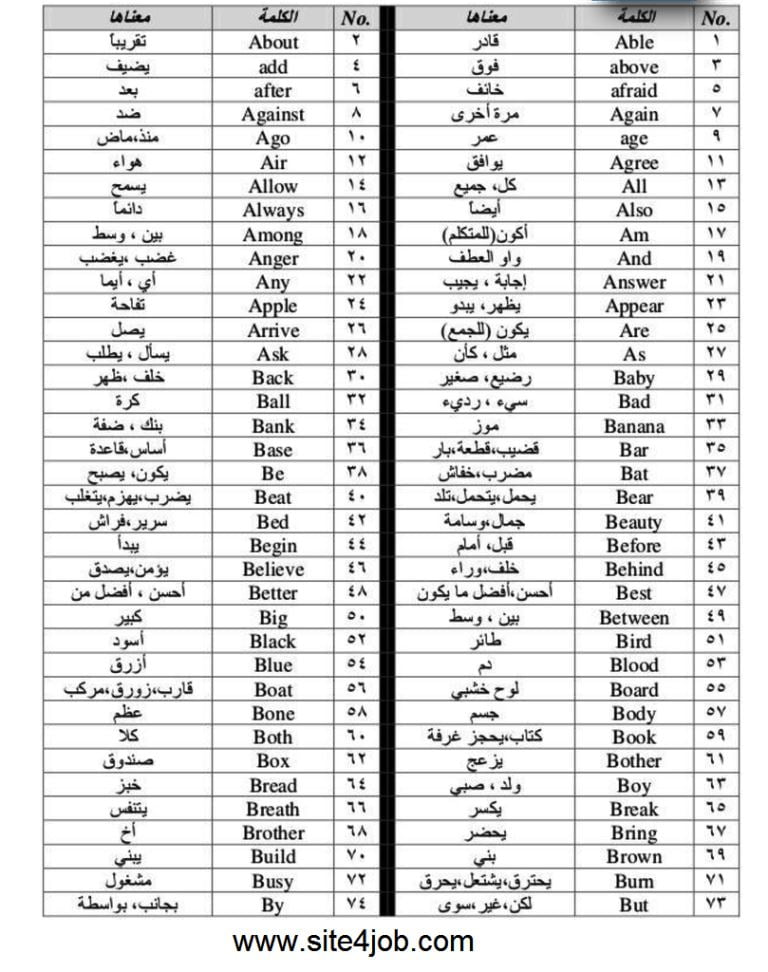 No. الكلمة معناها No. الكلمة معناها
١ Able قادر ٢ About تقريباً
٣ above فوق ٤ add يضيف
٥ afraid خائف ٦ after بعد
٧ Again مرة أخرى ٨ Against ضد
٩ age عمر ١٠ Ago منذ،ماض
١١ Agree يوافق ١٢ Air هواء
١٣ All كل، جميع ١٤ Allow يسمح
١٥ Also أيضاً ١٦ Always دائماً
١٧ Am أكون(للمتكلم) ١٨ Among بين ، وسط
١٩ And واو العطف ٢٠ Anger غضب ،يغضب
٢١ Answer إجابة ، يجيب ٢٢ Any أي ، أيما
٢٣ Appear يظهر، يبدو ٢٤ Apple تفاحة
٢٥ Are يكون (للجمع) ٢٦ Arrive يصل
٢٧ As مثل ، كأن ٢٨ Ask يسأل ، يطلب
٢٩ Baby رضيع، صغير ٣٠ Back خلف ،ظهر
٣١ Bad سيء ، رديء ٣٢ Ball كرة
٣٣ Banana موز ٣٤ Bank بنك ، ضفة
٣٥ Bar قضيب،قطعة،بار ٣٦ Base أساس،قاعدة
٣٧ Bat مضرب،خفاش ٣٨ Be يكون، يصبح
٣٩ Bear يحمل،يتحمل،تلد ٤٠ Beat يضرب،يهزم،يتغلب
٤١ Beauty جمال،وسامة ٤٢ Bed سرير،فراش
٤٣ Before قبل، أمام ٤٤ Begin يبدأ
٤٥ Behind خلف،وراء ٤٦ Believe يؤمن،يصدق
٤٧ Best أحسن،أفضل ما يكون ٤٨ Better أحسن ، أفضل من
٤٩ Between بين ، وسط ٥٠ Big كبير
٥١ Bird طائر ٥٢ Black أسود
٥٣ Blood دم ٥٤ Blue أزرق
٥٥ Board لوح خشبي ٥٦ Boat قارب،زورق،مركب
٥٧ Body جسم ٥٨ Bone عظم
٥٩ Book كتاب،يحجز غرفة ٦٠ Both كلا
٦١ Bother يزعج ٦٢ Box صندوق
٦٣ Boy ولد ، صبي ٦٤ Bread خبز
٦٥ Break يكسر ٦٦ Breath يتنفس
٦٧ Bring يحضر ٦٨ Brother أخ
٦٩ Brown بني ٧٠ Build يبني
٧١ Burn يحترق،يشتعل،يحرق ٧٢ Busy مشغول
٧٣ But لكن،غير ،سوى ٧٤ By بجانب، بواسطة
www.site4job.com